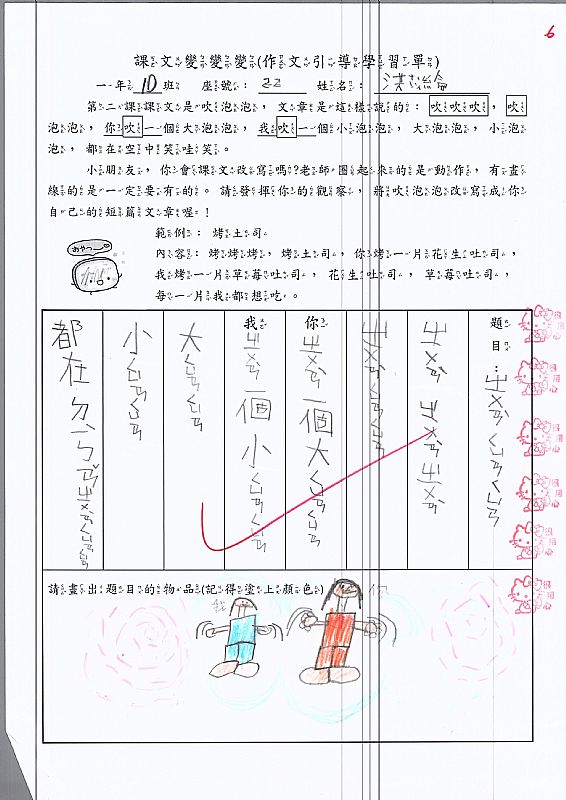 6
課文變變變(作文引導學習單)
一年10班 座號：22 姓名：
第二課課文是吹泡泡，文章是這樣說的：吹吹吹，吹
泡泡，你吹一個大泡泡，我吹一個小泡泡，大泡泡，小泡
泡，都在空中笑哇笑。
小朋友，你會課文改寫嗎?老師圈起來的是動作，有畫
線的是一定要有的。請發揮你的觀察，將吹泡泡改寫成你
自己的短篇文章喔！
範例：烤土司
內容：烤烤烤，烤土司，你烤一片花生吐司，
我烤一片草莓吐司，花生吐司，草莓吐司，
每一片我都想吃。
題目：ㄓㄨㄢ ㄑㄩㄢ ㄑㄩㄢ
ㄓㄨㄢ ㄓㄨㄢ ㄓㄨㄢ
ㄓㄨㄢ ㄑㄩㄢ ㄑㄩㄢ
你ㄓㄨㄢ一個大ㄑㄩㄢ ㄑㄩㄢ
我ㄓㄨㄢ一個小ㄑㄩㄢ ㄑㄩㄢ
大ㄑㄩㄢ ㄑㄩㄢ
小ㄑㄩㄢ ㄑㄩㄢ
請畫出題目的物品(記得塗上顏色)
我
你
很用心
很用心
很用心
很用心
很用心
很用心